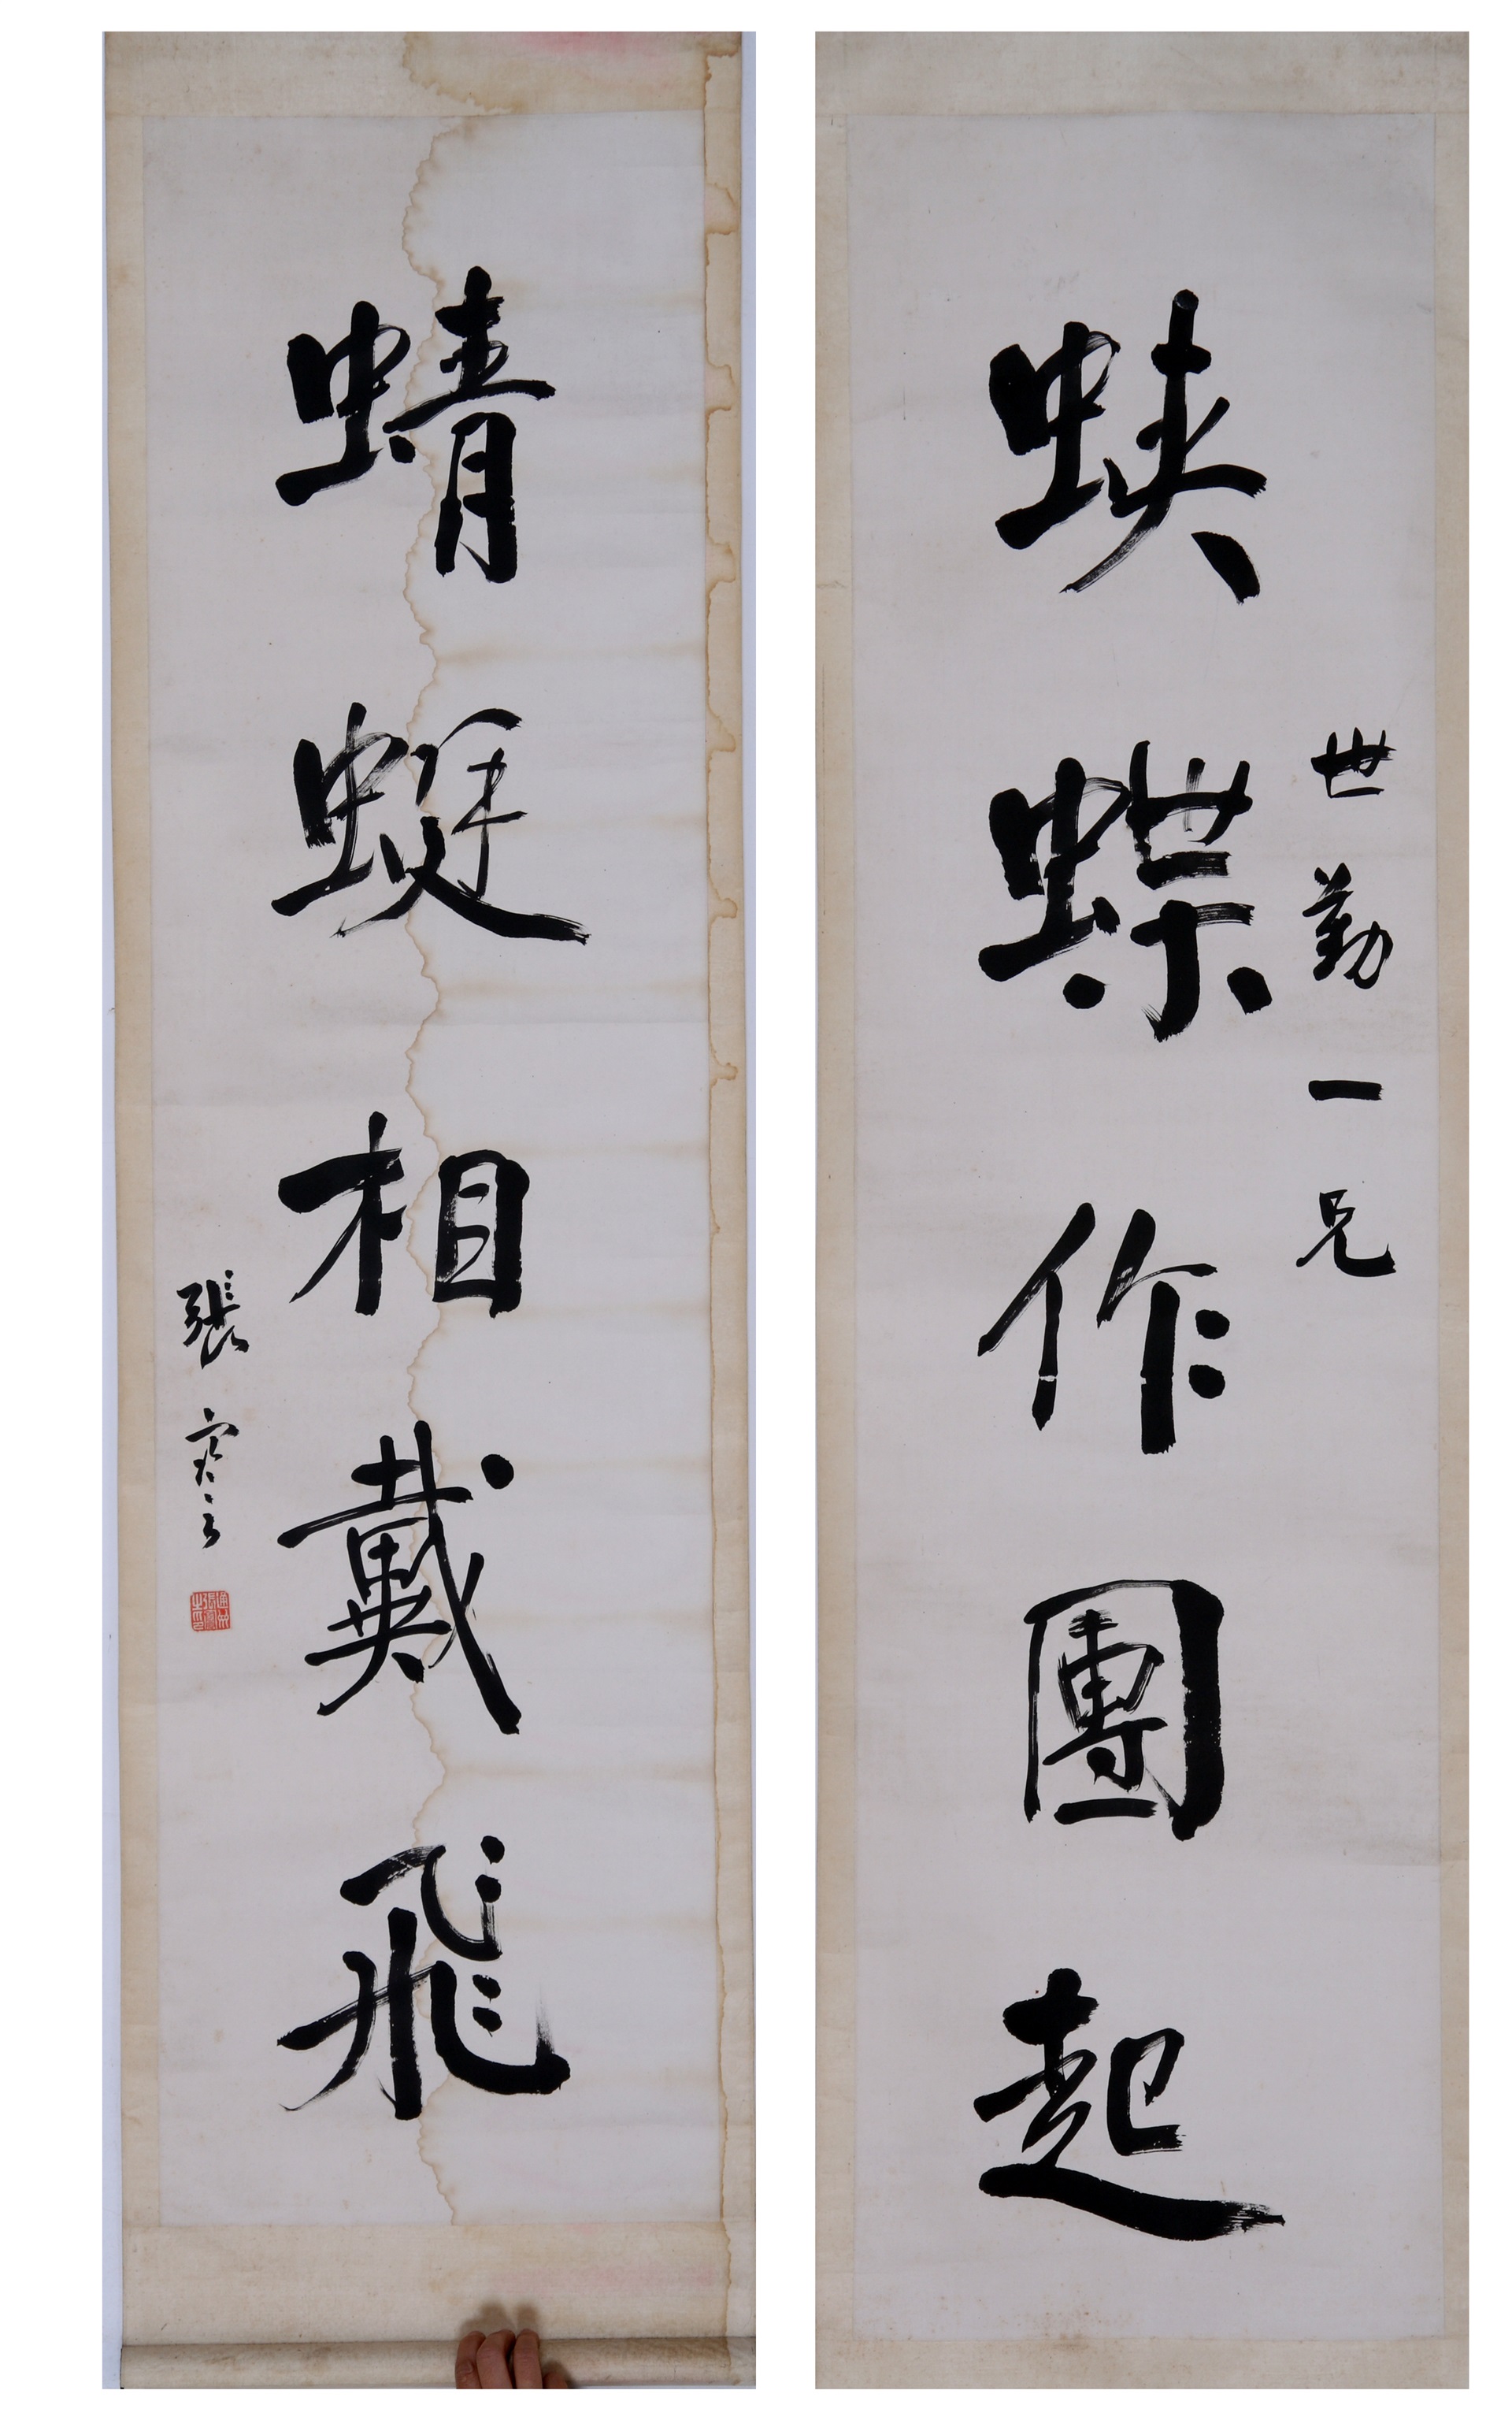 世勤一兄
蛺蝶作團起
蜻蜓相戴飛
張